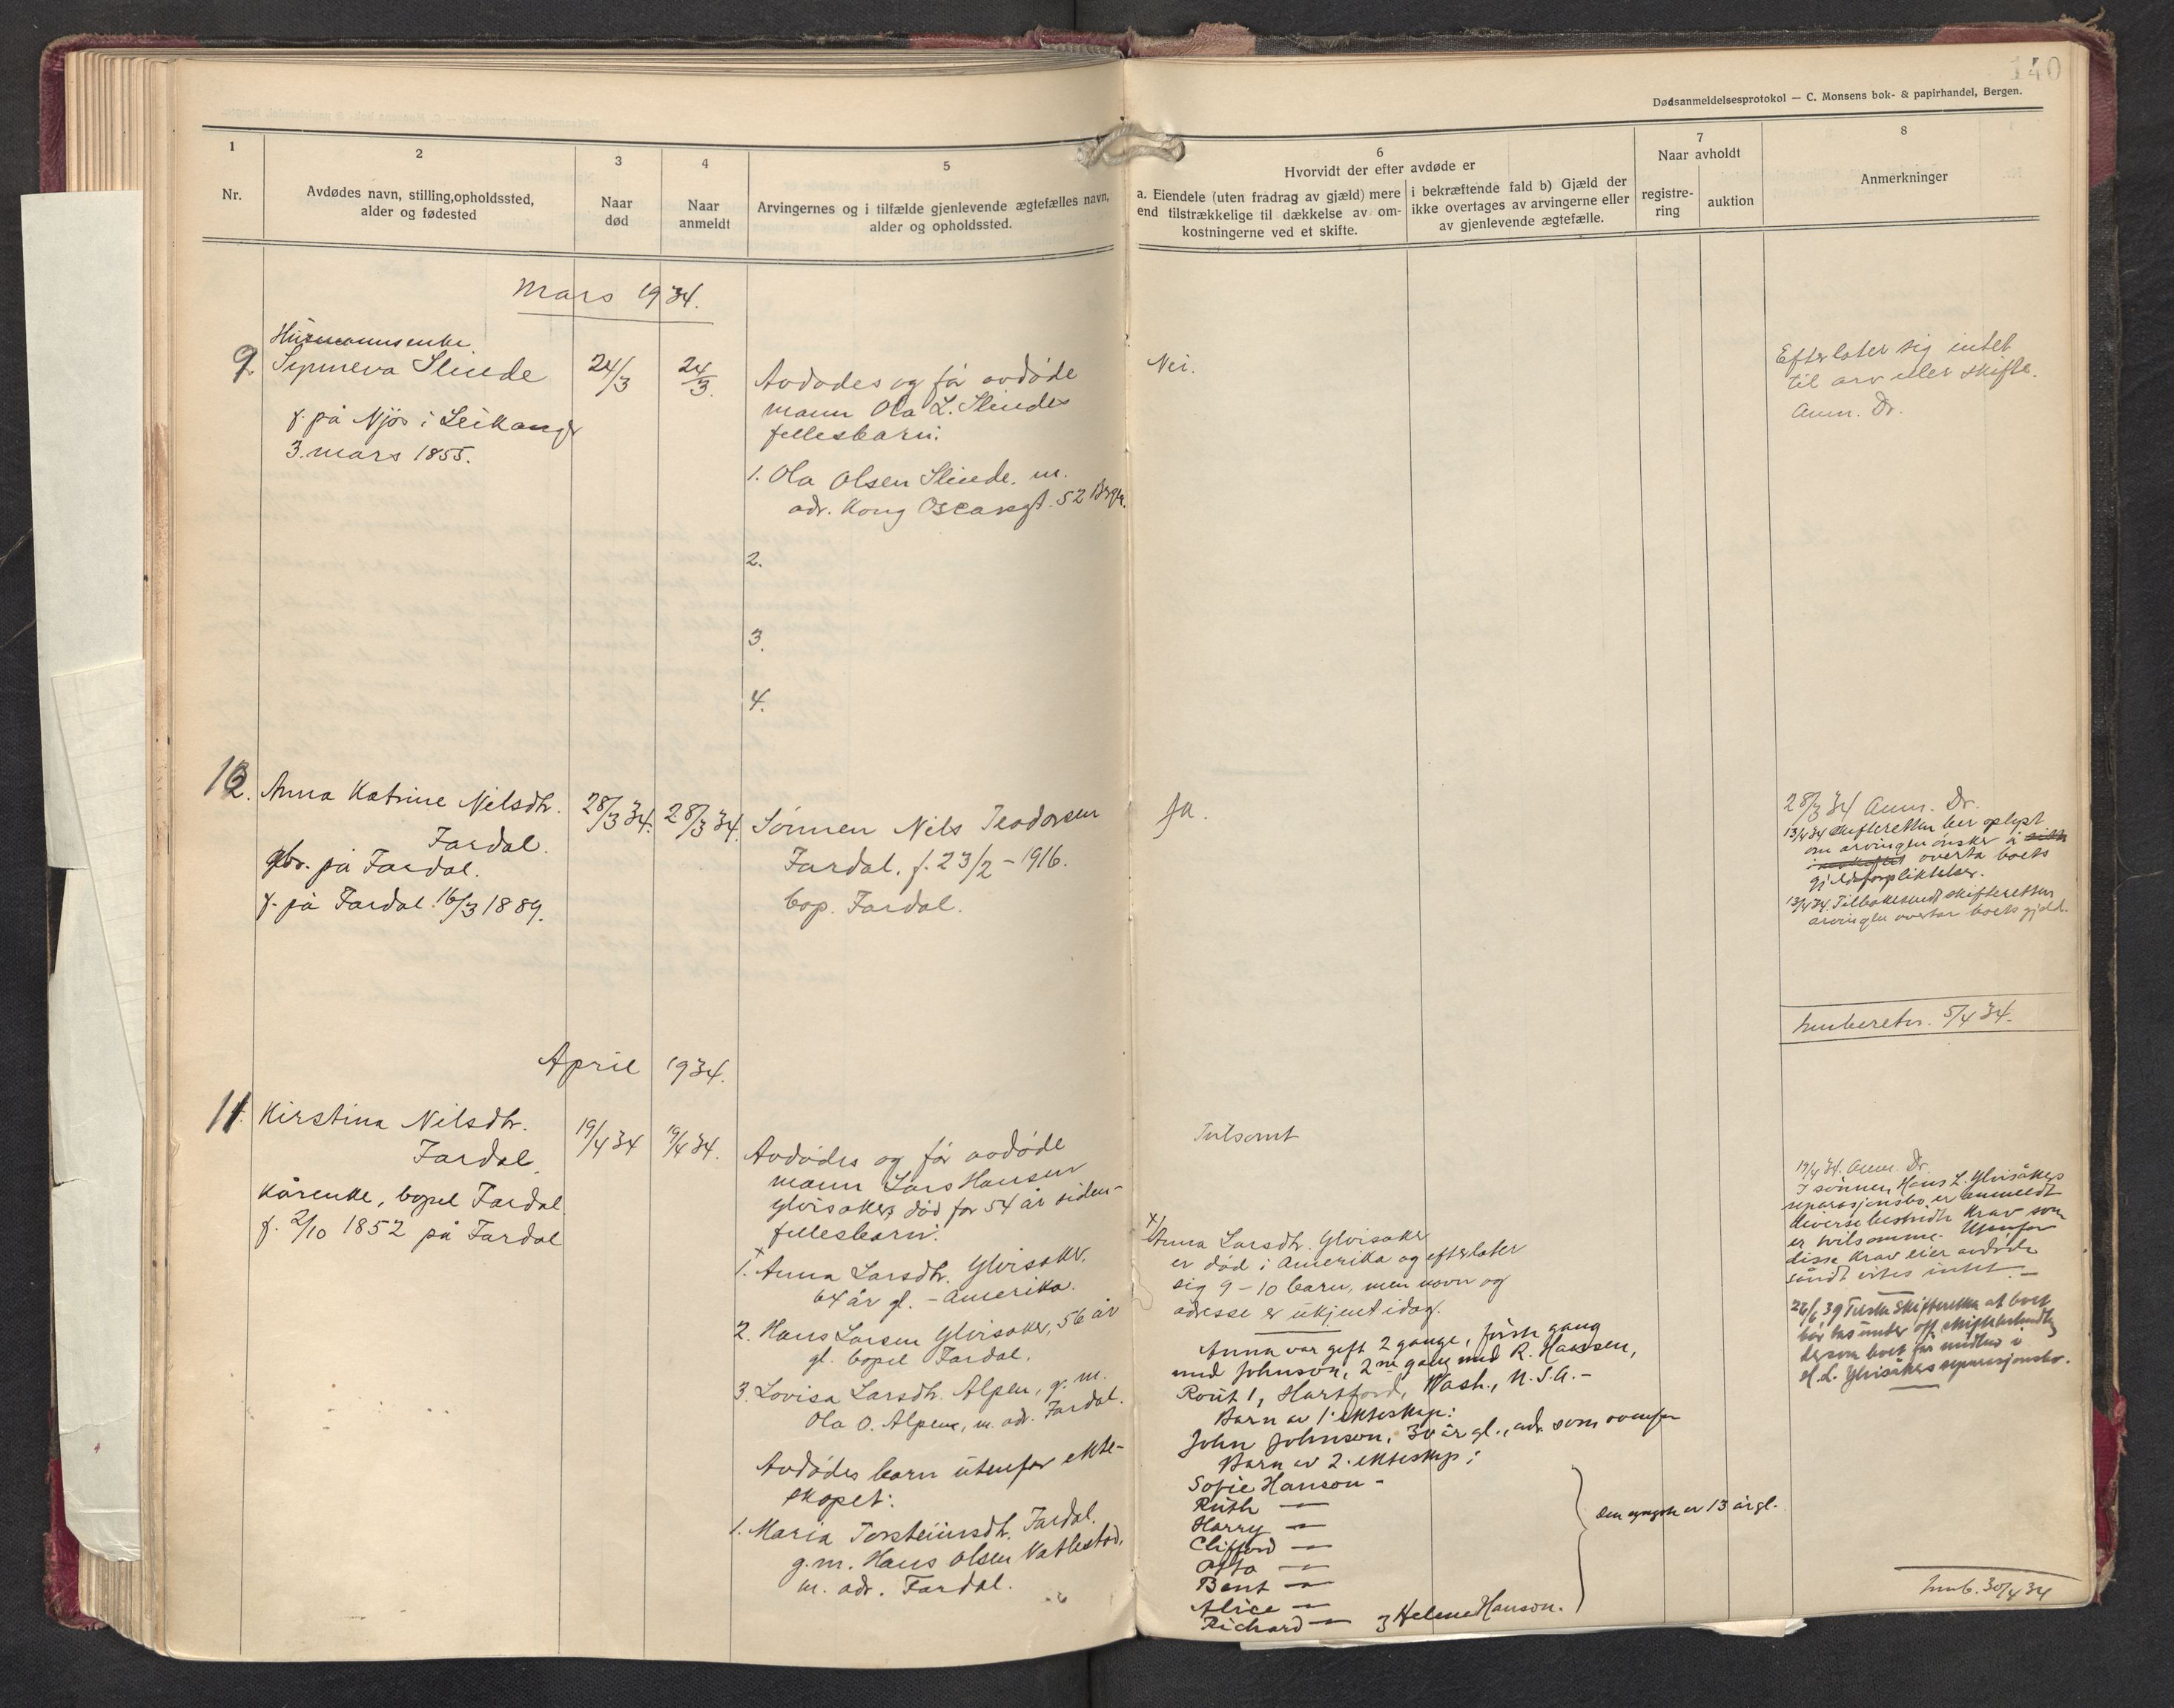 140
Dødsanmeldelsesprotokol — C. Monsens bok- & papirhandel, Bergen.
1
Nr.
2
Avdødes navn, stilling, opholdssted,
alder og fødested
3
Naar
død
4
Naar
anmeldt
5
Arvingernes og i tilfælde gjenlevende ægtefælles navn,
alder og opholdssted.
6
Hvorvidt der efter avdøde er
a. Eiendele (uten fradrag av gjæld) mere
end tilstrækkelige til dækkelse av om-
kostningerne ved et skifte.
i bekræftende fald b) Gjæld der
ikke overtages av arvingerne eller
av gjenlevende ægtefælle.
7
Naar avholdt
registre-
ring
auktion
8
Anmerkninger
Mars 1934.
9.
Synneva Slinde
f. på Njøs i Leikanger
3. mars 1855.
24/3
24/3.
Avdødes og før avdøde
mann Ola L. Slindes
fellesbarn:
1. Ola Olsen Slinde. m.
adr. Kong Oscarsgt. 52 Bergen.
2.
3.
4.
Nei.
Efterlater sig intet
til arv eller skifte.
Anm. Dr.
10.
Anna Katrine Nilsdtr.
Fardal.
gbr. på Fardal.
f. på Fardal 16/3 1889.
28/3 34.
28/3 34.
Sønnen Nils Teodorsen
Fardal. f. 23/2 - 1916.
bop. Fardal.
Ja.
28/3 34 Anm. Dr.
13/4 34 Skifteretten ber oplyst
om arvingen ønsker å
overta boets
gjeldsforpliktelser.
13/4 34. Tilbakesendt skifteretten
arvingen overtar boets gjeld.
Innberetn. 5/4 34.
April 1934.
11.
Kirstina Nilsdtr.
Fardal.
Kårenke, bopel Fardal.
f. 2/10 1852 på Fardal
19/4 34
19/4 34.
Avdødes og før avdøde
mann Lars Hansen
Ylvisaker, død for 54 år siden-
fellesbarn:
x
1. Anna Larsdtr. Ylvisaker.
64 år gl. - Amerika.
2. Hans Larsen Ylvisaker, 56 år
gl. bopel Fardal.
3. Lovisa Larsdtr. Alpen, g. m.
Ola O. Alpen, m. adr. Fardal.
Avdødes barn utenfor ekte-
skapet:
1. Maria Torsteinsdtr. Fardal.
g.m. Hans Olsen Vatlestad,
m. adr. Fardal.
Tvilsomt
x/
Anna Larsdtr. Ylvisaker
er død i Amerika og efterlater
sig 9 - 10 barn, men navn og
adresse er ukjent idag.
Anna var gift 2 gange, første gang
med Johnson, 2 ne gang med R. Hanssen,
Rout 1, Hartford, Wash., N.S.A. -
Barn av 1. ekteskap:
John Johnson, 30 år gl., adr. som ovenfor
Barn av 2. ekteskap:
Sofie Hanson -
Ruth —
Harry —
Clifford —
Otto —
Bent —
Alice —
Richard — Helene Hanson.
den yngste er 13 år gl.
19/4 34. Anm. Dr.
I sønnen, Hans L. Ylvisåkers
separasjonsbo er anmeldt
diverse bestridte krav som
er tvilsomme. Utenfor
disse krav eier avdøde
såvidt vites intet. —
bør tas under off. skiftebehandling
dersom boet får midler i
H. L. Ylvisåkers separasjonsbo.
Innb. 30/4 34